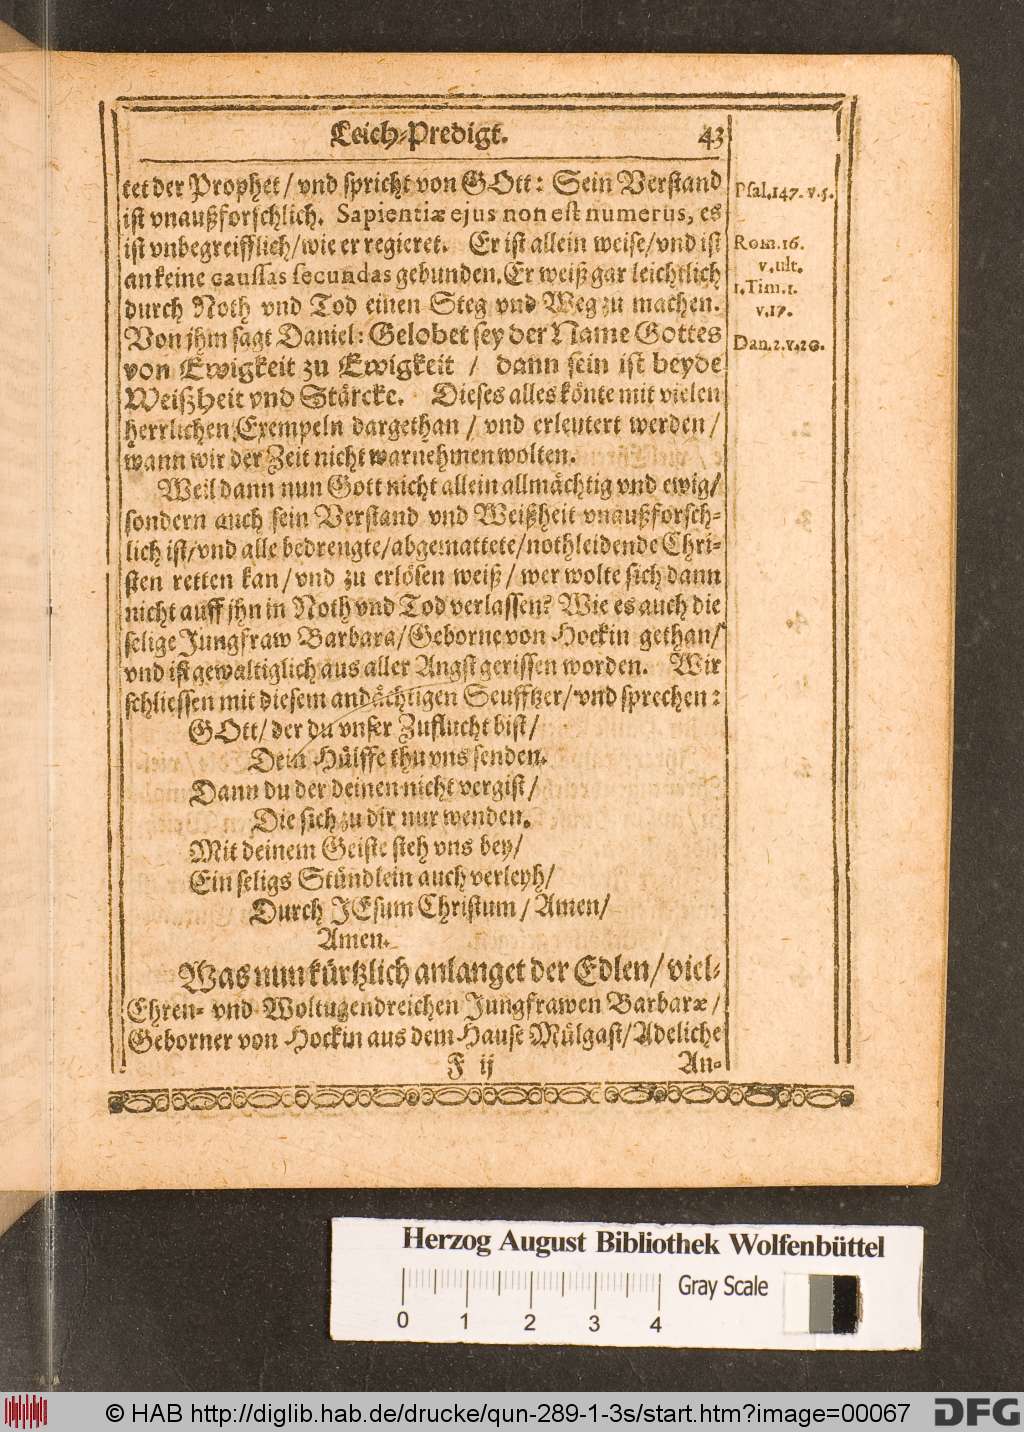 Leich-Predigt. 43
tet der Prophet / vnd spricht von GOtt: Sein Verstand
ist vnaußforschlich. Sapientiæ ejus non est numerus, es
ist vnbegreifflich / wie er regieret. Er ist allein weise / vnd ist
an keine caussas secundas gebunden. Er weiß gar leichtlich
durch Noth vnd Tod einen Steg vnd Weg zu machen.
Von jhm sagt Daniel: Gelobet sey der Name Gottes
von Ewigkeit zu Ewigkeit / dann sein ist beyde
Weißheit vnd Stärcke. Dieses alles könte mit vielen
herrlichen Exempeln dargethan / vnd erleutert werden /
wann wir der Zeit nicht warnehmen wolten.
Psal. 147. v. 5.
Rom. 16.
v. ult.
1. Tim. 1.
v. 17.
Dan. 2. v. 20.
Weil dann nun Gott nicht allein allmächtig vnd ewig /
sondern auch sein Verstand vnd Weißheit vnaußforsch-
lich ist / vnd alle bedrengte / abgemattete / nothleidende Chri-
sten retten kan / vnd zu erlösen weiß / wer wolte sich dann
nicht auff jhn in Noth vnd Tod verlassen? Wie es auch die
selige Jungfraw Barbara / Geborne von Hockin gethan /
vnd ist gewaltiglich aus aller Angst gerissen worden. Wir
schliessen mit diesem andächtigen Seufftzer / vnd sprechen:
GOtt / der du vnser Zuflucht bist /
Dein Hülffe thu vns senden.
Dann du der deinen nicht vergist /
Die sich zu dir nur wenden.
Mit deinem Geiste steh vns bey /
Ein seligs Stündlein auch verleyh /
Durch JEsum Christum / Amen /
Amen.
Was nun kürtzlich anlanget der Edlen / viel-
Ehren- vnd Woltugendreichen Jungfrawen Barbaræ /
Geborner von Hockin aus dem Hause Mülgast / Adeliche
F ij An-
Herzog August Bibliothek Wolfenbüttel
Gray Scale
0 1 2 3 4
© HAB http://diglib.hab.de/drucke/qun-289-1-3s/start.htm?image=00067 DFG